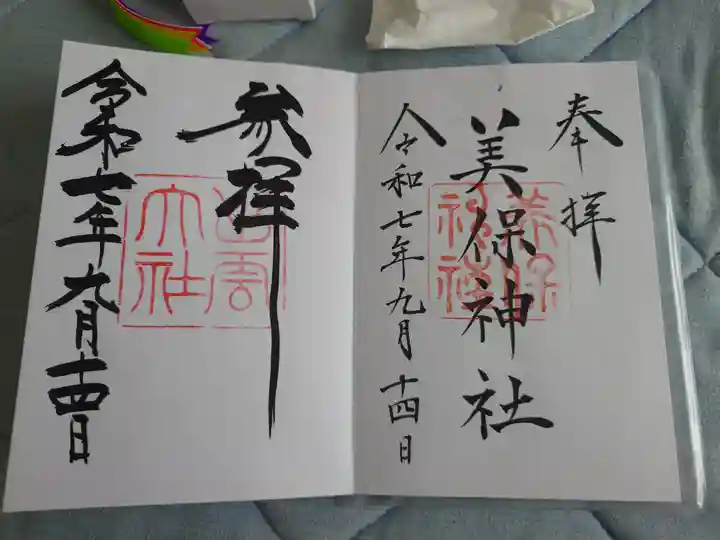 奉拝
美保神社
美保神社
令和七年九月十四日
参拝
出雲大社
令和七年九月十四日